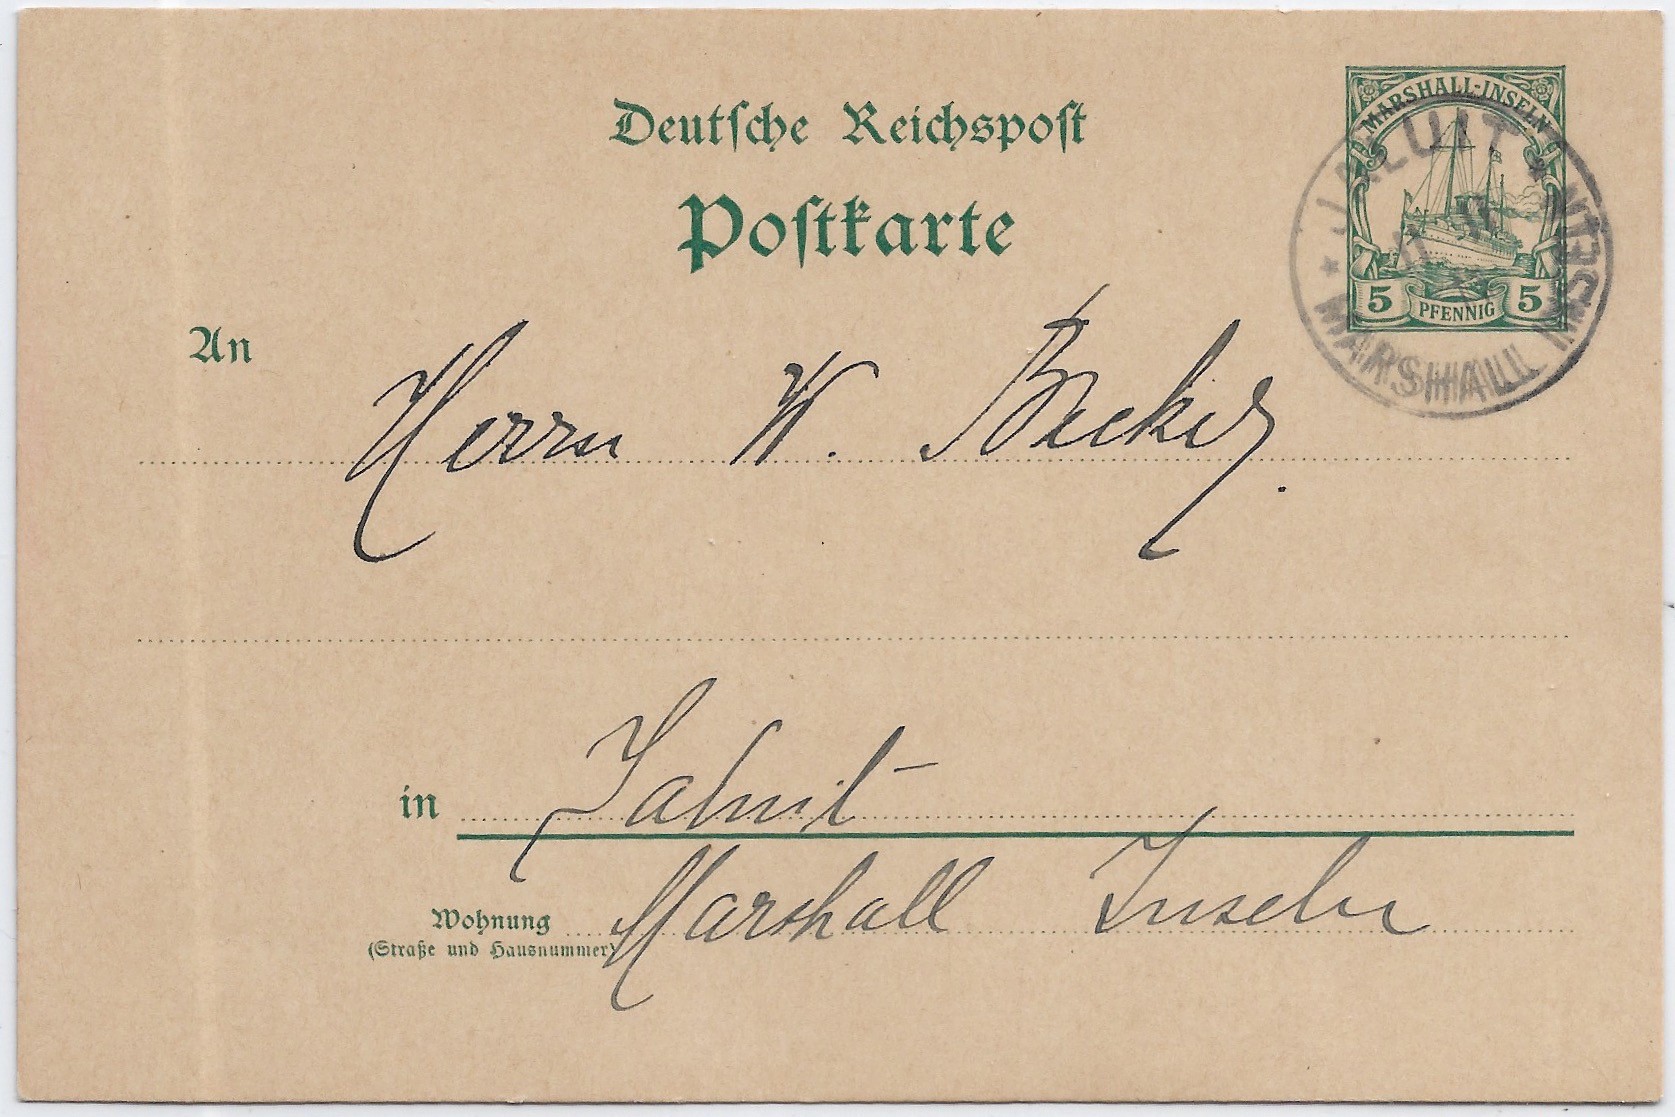 Deutsche Reichspost
Postkarte
MARSHALL-INSELN
5 PFENNIG 5
JALUIT
MARSHALL INSELN
An
Herrn W. Becker.
in Jaluit
Marshall Inseln
Wohnung
(Straße und Hausnummer)